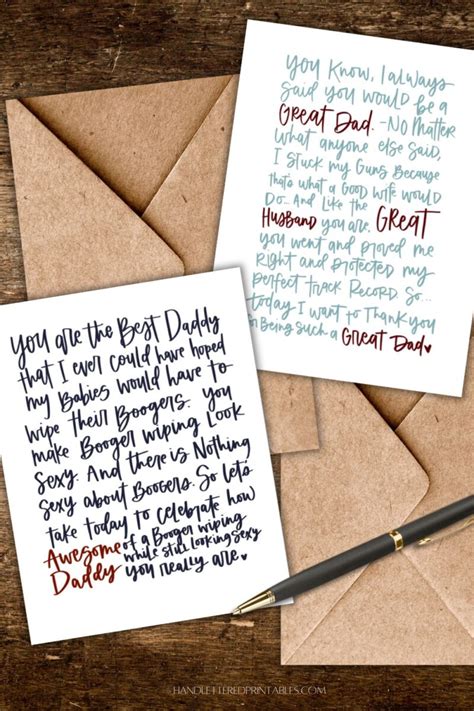 You Know, I always
said you would be a
Great Dad. -No Matter
what anyone else said,
I stuck my Guns Because
that's what a Good wife would
Do... And Like the Great
Husband you are,
you went and proved me
Right and protected my
perfect track Record. So...
today I want to thank you
for Being such a Great Dad
you are the Best Daddy
that I ever could have hoped
my Babies would have to
wipe their Boogers. you
make Booger wiping Look
sexy. And there is Nothing
sexy about Boogers. So let's
take today to celebrate how
Awesome of a Booger wiping
Daddy while still looking sexy
you really are.
HANDLETTEREDPRINTABLES.COM